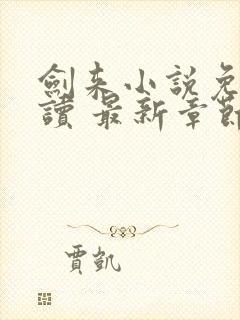 劍来小說免
讀 最新章節
賈凱